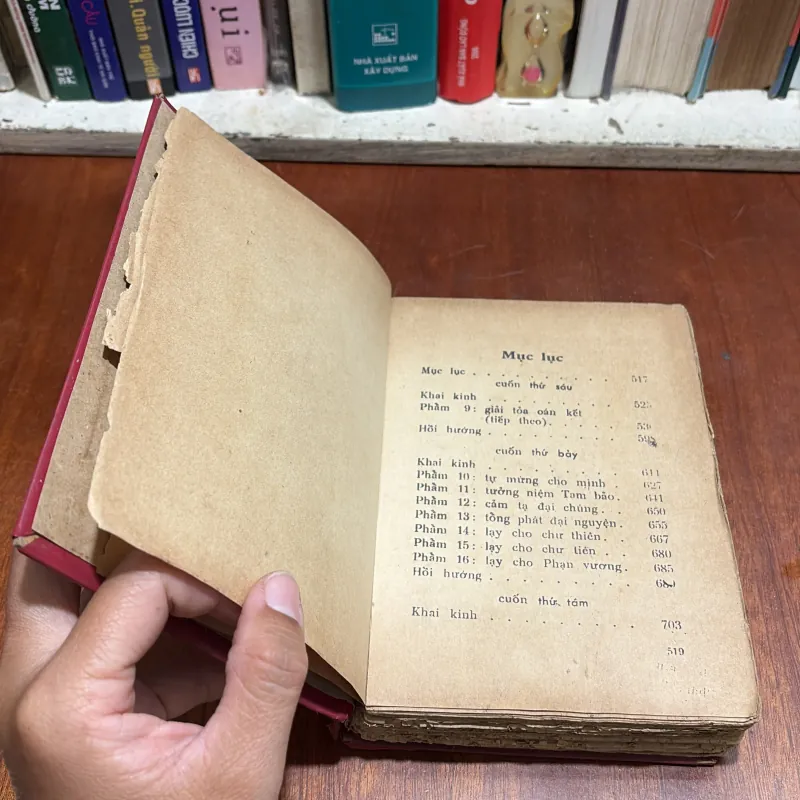 Quán người
CHIẾN LƯỢC
NHÀ XUẤT BẢN
XÂY DỰNG
Mục lục
Mục lục . . . . . . . . . . 517
cuốn thứ sáu
Khai kinh . . . . . . . . . 525
Phẩm 9: giải tỏa oán kết
(tiếp theo). . . . . . 53
Hồi hướng . . . . . . . . . 59
cuốn thứ bảy
Khai kinh . . . . . . . . . 611
Phẩm 10: tự mừng cho mình . 627
Phẩm 11: tưởng niệm Tam bảo. 641
Phẩm 12: cảm tạ đại chúng. . 650
Phẩm 13: tổng phát đại nguyện. 655
Phẩm 14: lạy cho chư thiên. . 667
Phẩm 15: lạy cho chư tiên. . 680
Phẩm 16: lạy cho Phạn vương. 685
Hồi hướng . . . . . . . . . 689
cuốn thứ tám
Khai kinh . . . . . . . . . 703
519